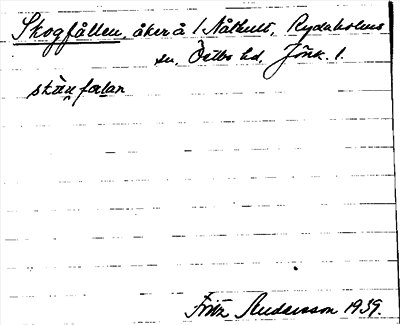 Skogfållen, åker å 1 Nåthult, Rydaholms
sn, Östbo hd, Jönk. l.
Fritz Andersson 1939.